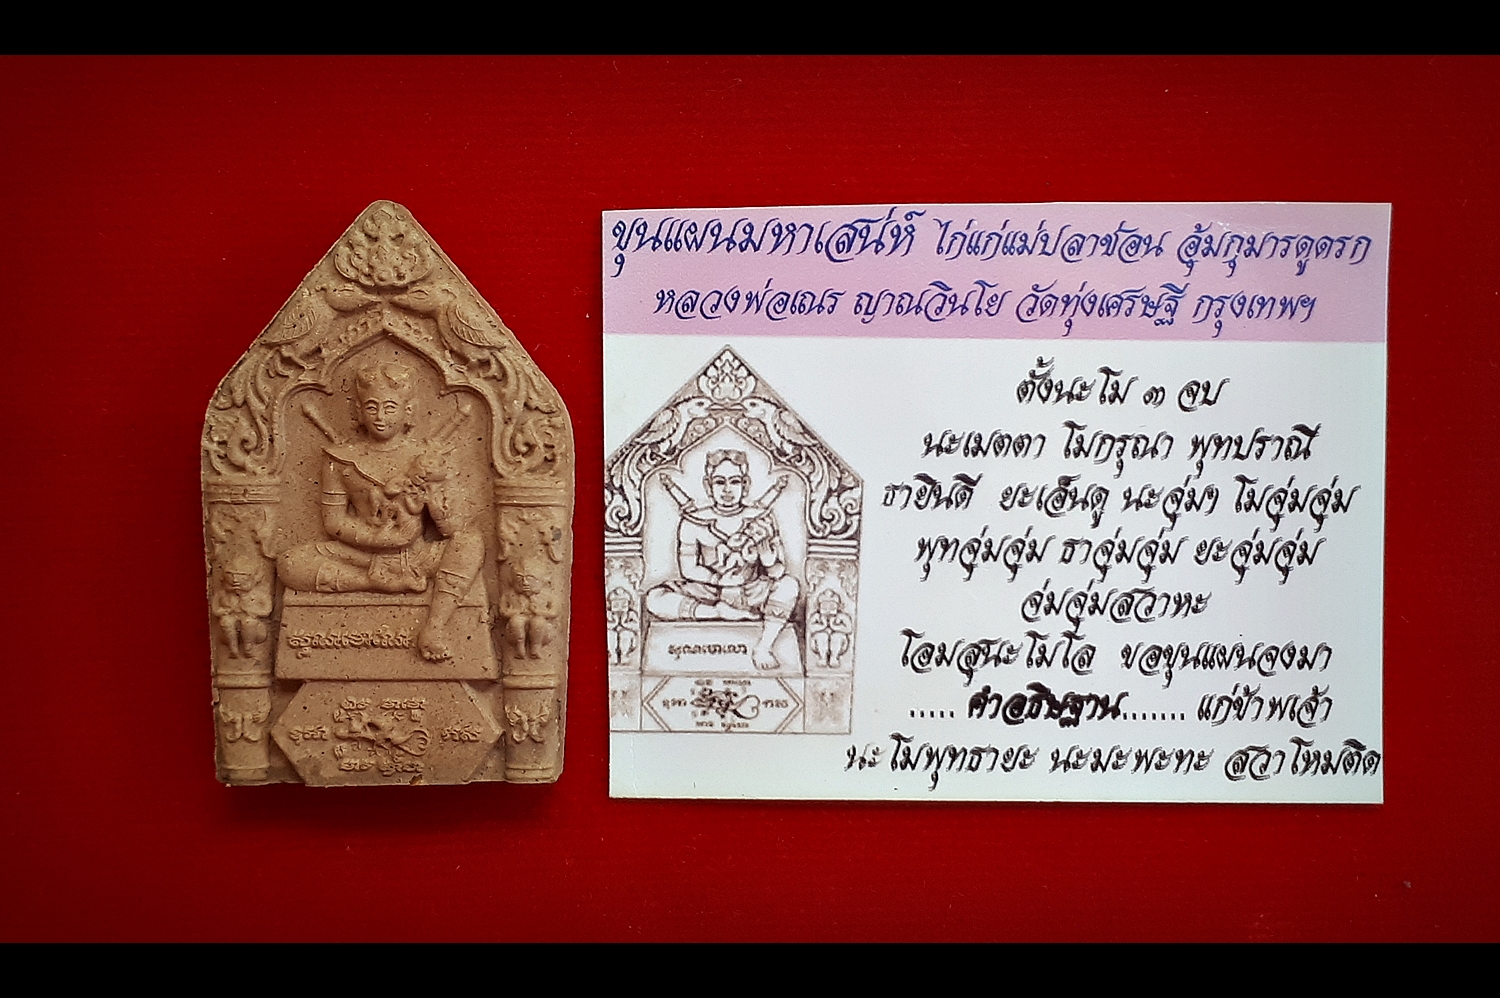 ขุนแผนมหาเสน่ห์ ไก่แก่แม่ปลาช่อน อุ้มกุมารดูดรก
หลวงพ่อเณร ญาณวินโย วัดทุ่งเศรษฐี กรุงเทพฯ
ตั้งนะโม ๓ จบ
นะเมตตา โมกรุณา พุทปราณี
ธายินดี ยะเอ็นดู นะจุ่มๆ โมจุ่มจุ่ม
พุทจุ่มจุ่ม ธาจุ่มจุ่ม ยะจุ่มจุ่ม
จ่มจุ่มสวาหะ
โอมสุนะโมโล ขอขุนแผนจงมา
..... คำอธิษฐาน....... แก่ข้าพเจ้า
นะโมพุทธายะ นะมะพะทะ สวาโหมติด